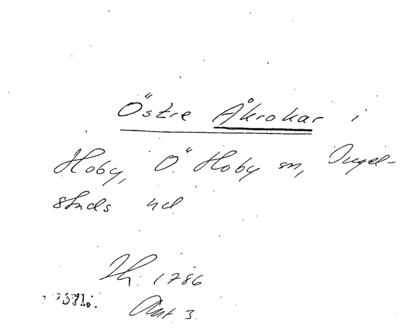 Östre Åkrokar i
Hoby, Ö. Hoby sn, Ingel-
stads hd
1786
Akt 3.